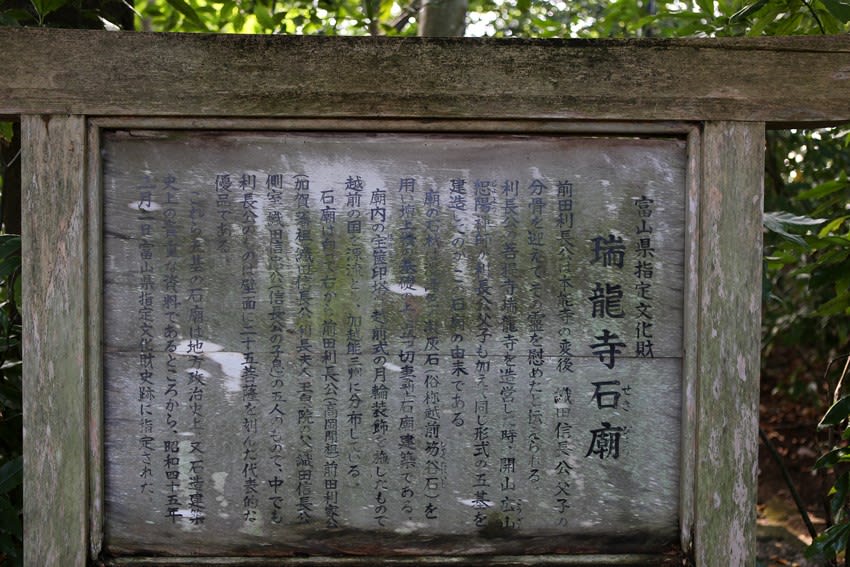 富山県指定文化財
瑞龍寺石廟
前田利長公は本能寺の変後 織田信長公父子の
分骨を迎えてその霊を慰めたと伝えられる。
利長公の菩提寺瑞龍寺を造営した時 開山広山
恕陽禅師が利長公父子も加え、同じ形式の五基を
建造したのがこの石廟の由来である
廟の石材は 凝灰石(俗称越前笏谷石)を
用い壇上積の基礎の上に立つ切妻型石廟建築である。
廟内の宝篋印塔は越前式の月輪装飾を施したもので
越前の国を源流とし、加越能三州に分布している。
石廟は向って右から前田利長公(高岡開祖)前田利家公
(加賀藩祖)織田信長公 利長夫人玉泉院の父 織田信長公
側室 織田信忠公(信長公の子息)の五人のもので、中でも
利長公のものは壁面に二十五菩薩を刻んだ代表的な
優品である。
これら五基の石廟は地方政治史上、又石造建築
史上の貴重な資料であるところから、昭和四十五年
月 日富山県指定文化財史跡に指定された。